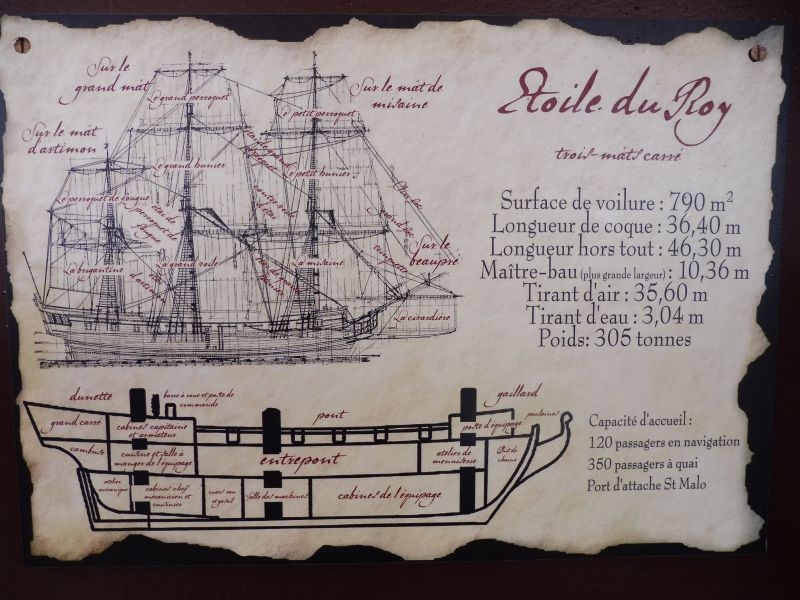 Etoile du Roy
trois-mâts carré
Surface de voilure : 790 m²
Longueur de coque : 36,40 m
Longueur hors tout : 46,30 m
Maître-bau (plus grande largeur) : 10,36 m
Tirant d'air : 35,60 m
Tirant d'eau : 3,04 m
Poids: 305 tonnes
Sur le
grand mât
Sur le mât de
misaine
Sur le mât
d'artimon
Sur le
beaupré
Le grand perroquet
Le petit perroquet
Le grand hunier
Le petit hunier
Le perroquet de fougue
La brigantine
La grand voile
La misaine
La civardière
dunette
barre à roue et poste de
commande
pont
gaillard
poulaines
grand carré
cabines capitaine
et armateur
poste d'équipage
cambuse
cuisine et salle à
manger de l'équipage
entrepont
atelier de
menuiserie
Puit de
chaîne
atelier
mécanique
cabines chef
mécanicien et
cuisinier
salle des machines
cabines de l'équipage
Capacité d'accueil :
120 passagers en navigation
350 passagers à quai
Port d'attache St Malo